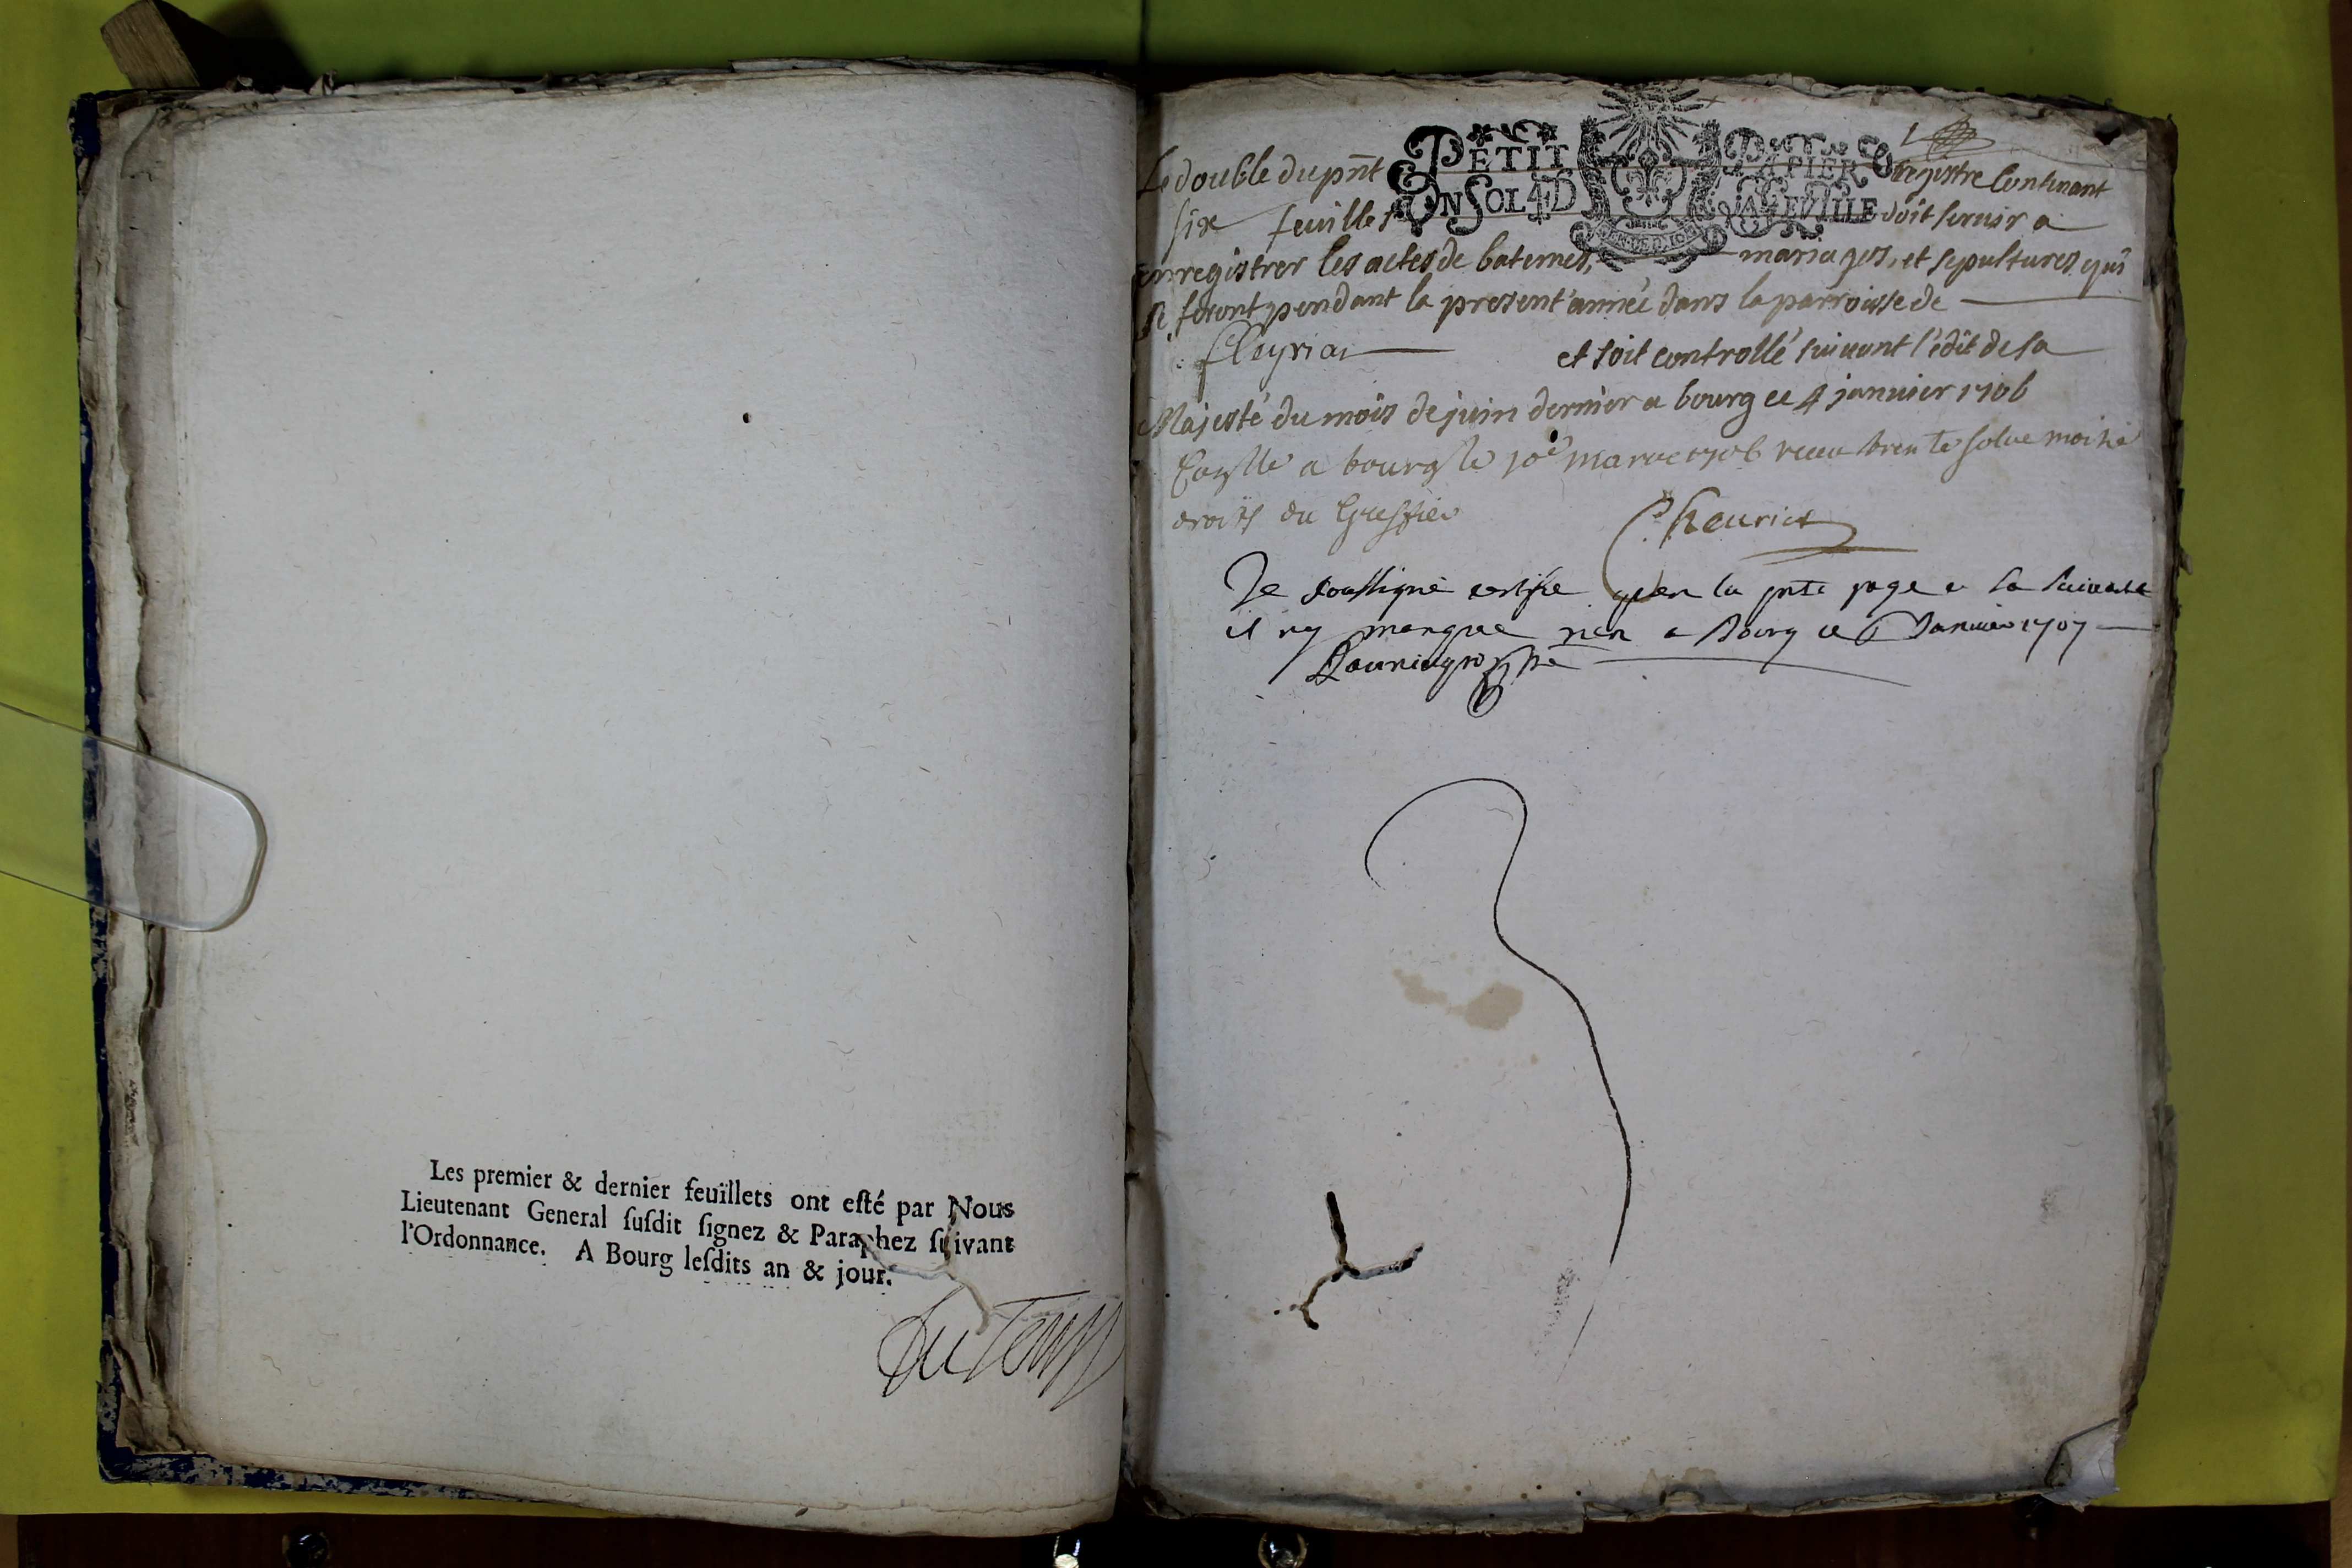 Les premier & dernier feuïllets ont eſté par Nous
Lieutenant General ſuſdit ſignez & Paraphez ſuivant
l'Ordonnance. A Bourg leſdits an & jour.
PETIT PAPIER
UN SOL 4D LA FEUILLE
1
Le double du pñt registre Contenant
six feuillets doit seruir a
enregistrer les actes de batemes, mariages, et sepultures qui
se feront pendant la present' année dans la parroisse de
fleyria et soit controllé suiuant l'édit de sa
Majesté du mois de juin dernier a bourg ce 4 januier 1706
a bourg le 10e mars 1706 receu trente solz moitié
droits du Greffier
Je soussigné certifie quen la pnte page e la suiuante
il ny manque rien a Bourg ce Januier 1707